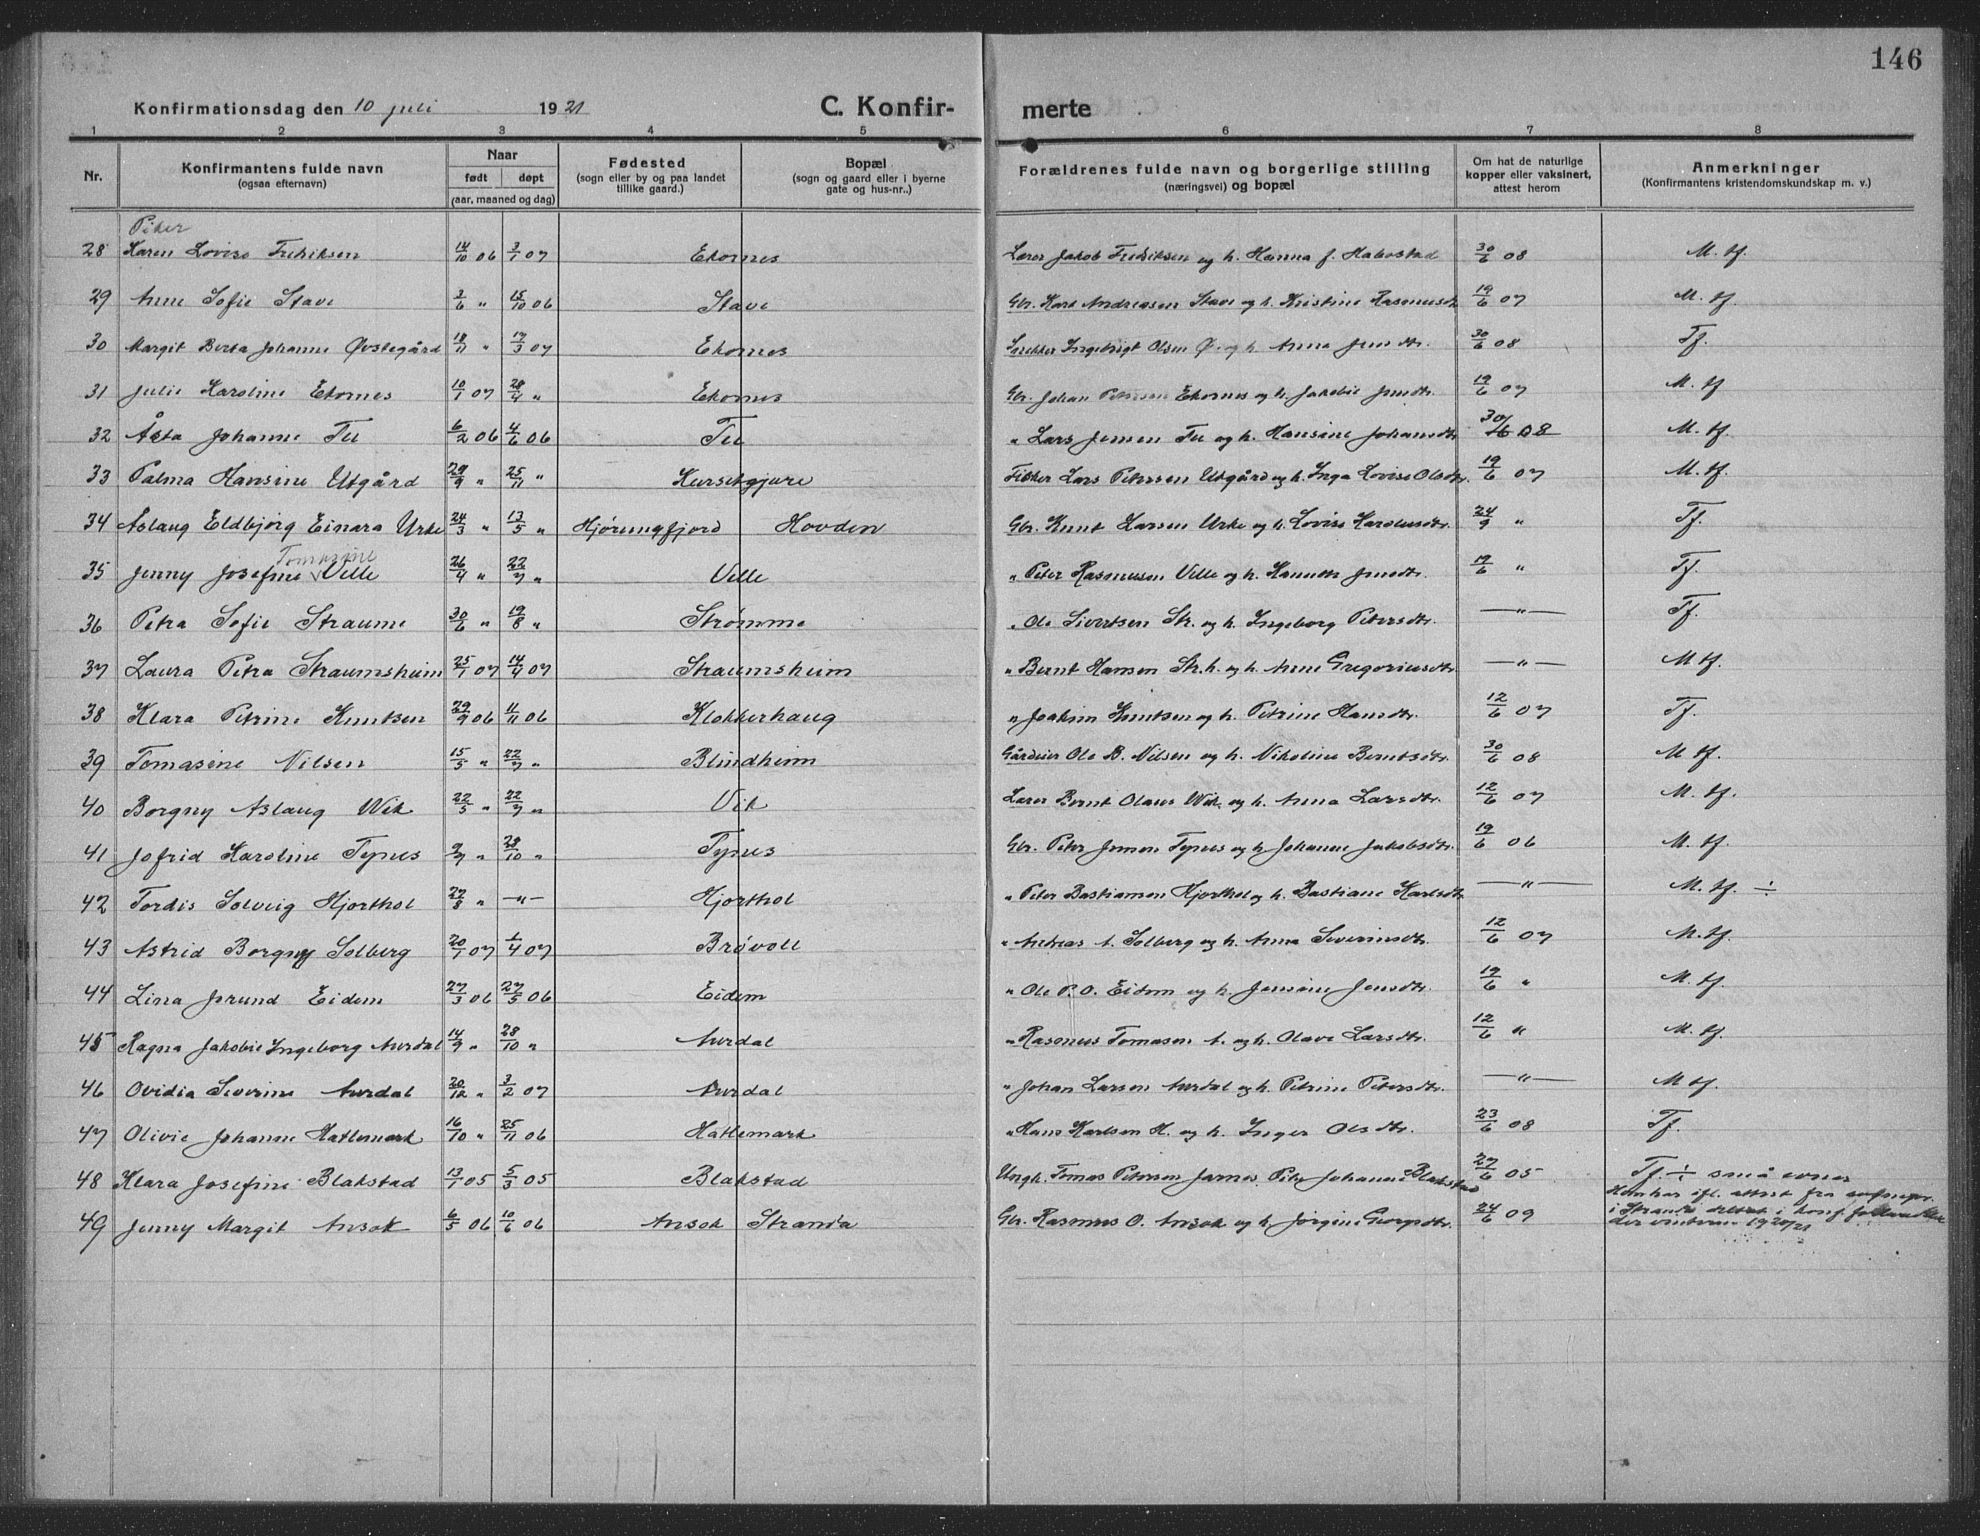 146
Konfirmationsdag den 10 juli 1921 C. Konfir- merte
1 2 3 4 5 6 7 8
Nr. Konfirmantens fulde navn (ogsaa efternavn) Naar født døpt (aar, maaned og dag) Fødested (sogn eller by og paa landet tillike gaard.) Bopæl (sogn og gaard eller i byerne gate og hus-nr..) Forældrenes fulde navn og borgerlige stilling (næringsvei) og bopæl Om hat de naturlige kopper eller vaksinert, attest herom Anmerkninger (Konfirmantens kristendomskundskap m. v.)
Piker
28 Karen Lovise Fredriksen 14/10 06 3/1 07 Ekornes Lærer Jakob Fredriksen og h. Hanna f. Habostad 30/6 08 M. tf.
29 Anne Sofie Stave 3/6 " 15/10 06 Stave Gbr. Karl Andreasen Stave og h. Kristine Rasmusdtr. 19/6 07 M. tf.
30 Margit Berta Johanne Øvstegård 18/11 " 17/3 07 Ekornes Ingebrigt Olsen Ø. og h. Anna Jensdtr. 30/6 08 Tf.
31 Julie Karoline Ekornes 10/1 07 28/4 " Ekornes Gbr. Johan Petersen Ekornes og h. Jakobie Jensdtr. 19/6 07 M. tf
32 Åsta Johanne Tu 6/2 06 4/6 06 Tu " Lars Jensen Tu og h. Hansine Johansdtr. 30/6 08 M. tf.
33 Palma Hansine Utgård 29/9 " 25/11 " Kursetgjøre Fisker Lars Petersen Utgård og h. Inga Lovise Olsdtr. 19/6 07 M. tf.
34 Åslaug Eldbjørg Einara Urke 24/3 " 13/5 " Hjørungfjord Hovden Gbr. Knut Larsen Urke og h. Lovise Karolusdtr. 24/9 " Tf.
35 Jenny Josefine Tomasine Velle 26/4 " 22/7 " Velle " Peter Rasmusen Velle og h. Jensdtr. 19/6 " Tf.
36 Petra Sofie Straume 30/6 " 19/8 " Strømme " Ole Sivertsen Str. og h. Ingeborg Petersdtr. —"— Tf.
37 Laura Petra Straumsheim 25/1 07 14/4 07 Straumsheim " Bernt Hansen Str.h. og h. Anne Gregoriusdtr. —"— M tf.
38 Klara Petrine Knutsen 29/9 06 11/11 06 Klokkerhaug " Joakim Knutsen og h. Petrine Hansdtr. 12/6 07 Tf.
39 Tomasine Nilsen 15/5 " 22/7 " Blindheim Gårdeier Ole B. Nilsen og h. Nikoline Berntsdtr. 30/6 08 M tf.
40 Borgny Aslaug Wik 22/5 " 22/7 " Vik Lærer Bernt Olaus Wik og h. Anna Larsdtr. 12/6 07 M. tf.
41 Jofrid Karoline Tynes 9/7 " 28/10 " Tynes Gbr. Peter Jensen Tynes og h. Johanne Jakobsdtr. 19/6 06 M. tf.
42 Tordis Solveig Hjorthol 27/8 " —"— Hjorthol " Peter Bastiansen Hjorthol og h. Bastiane Karlsdtr. —"— M. tf. ÷
43 Astrid Borgny Solberg 20/1 07 1/4 07 Brøvoll " Andreas A. Solberg og h. Anna Severinsdtr. 12/6 07 M. tf.
44 Lina Jorund Eidem 27/3 06 27/5 06 Eidem " Ole P. O. Eidem og h. Jensine Jensdtr. 19/6 " M. tf.
45 Ragna Jakobie Ingeborg Aurdal 14/9 " 28/10 " Aurdal " Rasmus Tomasen A. og h. Olave Larsdtr. 12/6 " M. tf.
46 Ovidia Severine Aurdal 20/12 " 3/2 07 Aurdal " Johan Larsen Aurdal og h. Petrine Petersdtr. —"— M tf.
47 Olivie Johanne Hatlemark 16/10 " 25/11 06 Hatlemark " Hans Karlsen H. og h. Inger Olsdtr. 23/6 08 Tf.
48 Klara Josefine Blakstad 13/1 05 5/3 05 Blakstad Ungk. Tomas Petersen Jarnes. Pike Johanne Blakstad 27/6 05 Tf. ÷ små evner
49 Jenny Margit Ansok 6/5 06 10/6 06 Ansok Stranda Gbr. Rasmus O. Ansok og h. Jørgine Georgsdtr. 24/6 09 Hun har ifl. attest fra sognepr.
i Stranda deltat i konf.
der vinteren 1920/21